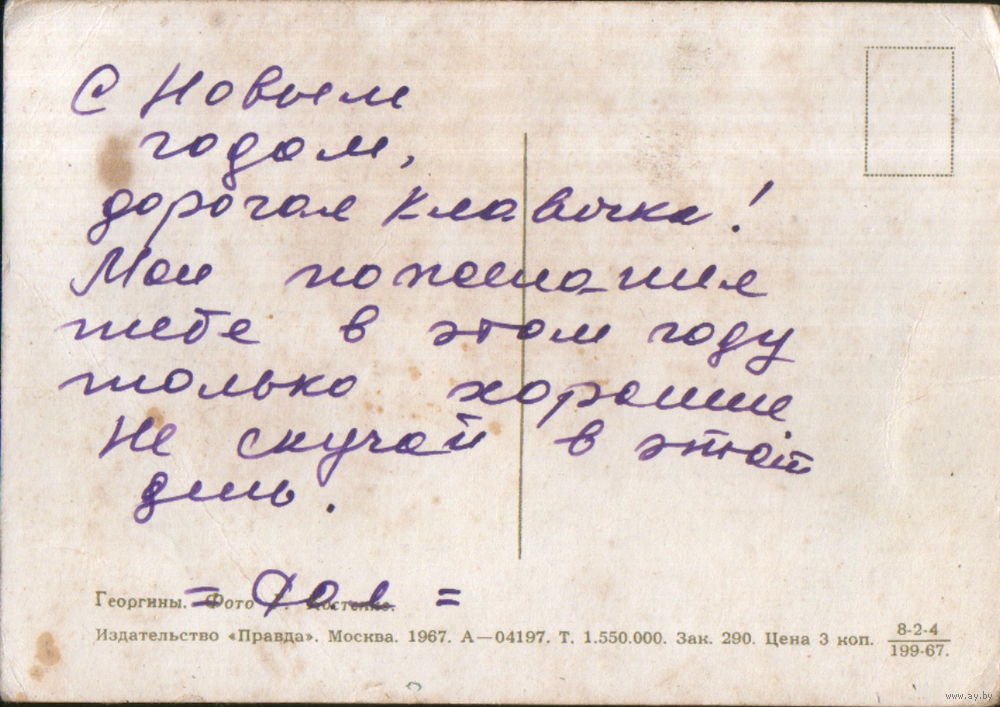 С Новым
годом,
дорогая Клавочка!
Мои пожелания
тебе в этом году
только хорошие
Не скучай в этот
день.
= Фая =
Георгины. Фото Костенко.
Издательство «Правда». Москва. 1967. А—04197. Т. 1.550.000. Зак. 290. Цена 3 коп.
8-2-4
199-67.
www.ay.by